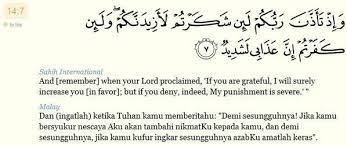 14:7
وَإِذْ تَأَذَّنَ رَبُّكُمْ لَئِن شَكَرْتُمْ لَأَزِيدَنَّكُمْ ۖ وَلَئِن
كَفَرْتُمْ إِنَّ عَذَابِي لَشَدِيدٌ ﴿٧﴾
Sahih International
And [remember] when your Lord proclaimed, 'If you are grateful, I will surely
increase you [in favor]; but if you deny, indeed, My punishment is severe.' "
Malay
Dan (ingatlah) ketika Tuhan kamu memberitahu: "Demi sesungguhnya! Jika kamu
bersyukur nescaya Aku akan tambahi nikmatKu kepada kamu, dan demi
sesungguhnya, jika kamu kufur ingkar sesungguhnya azabKu amatlah keras".